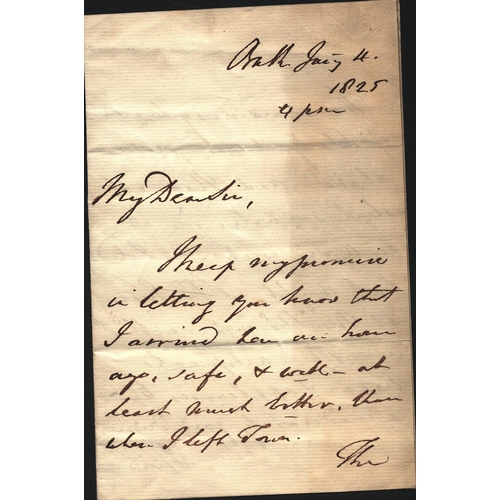 Bath Jany 4.
1825
4 pm
My Dear Sir,
I keep my promise
in letting you know that
I arrived here an hour
ago, safe, & well – at
least much better, than
when I left Town.
The